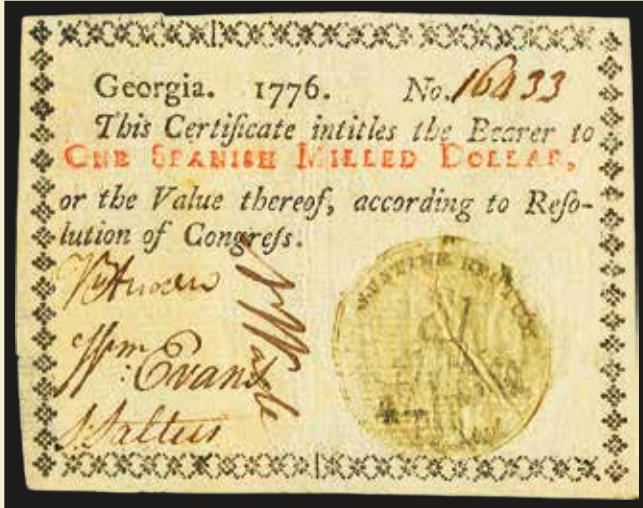 Georgia. 1776. No. 16433
This Certificate intitles the Bearer to
ONE SPANISH MILLED DOLLAR,
or the Value thereof, according to Reſo-
lution of Congreſs.
Wm: Evans
S: Saltus